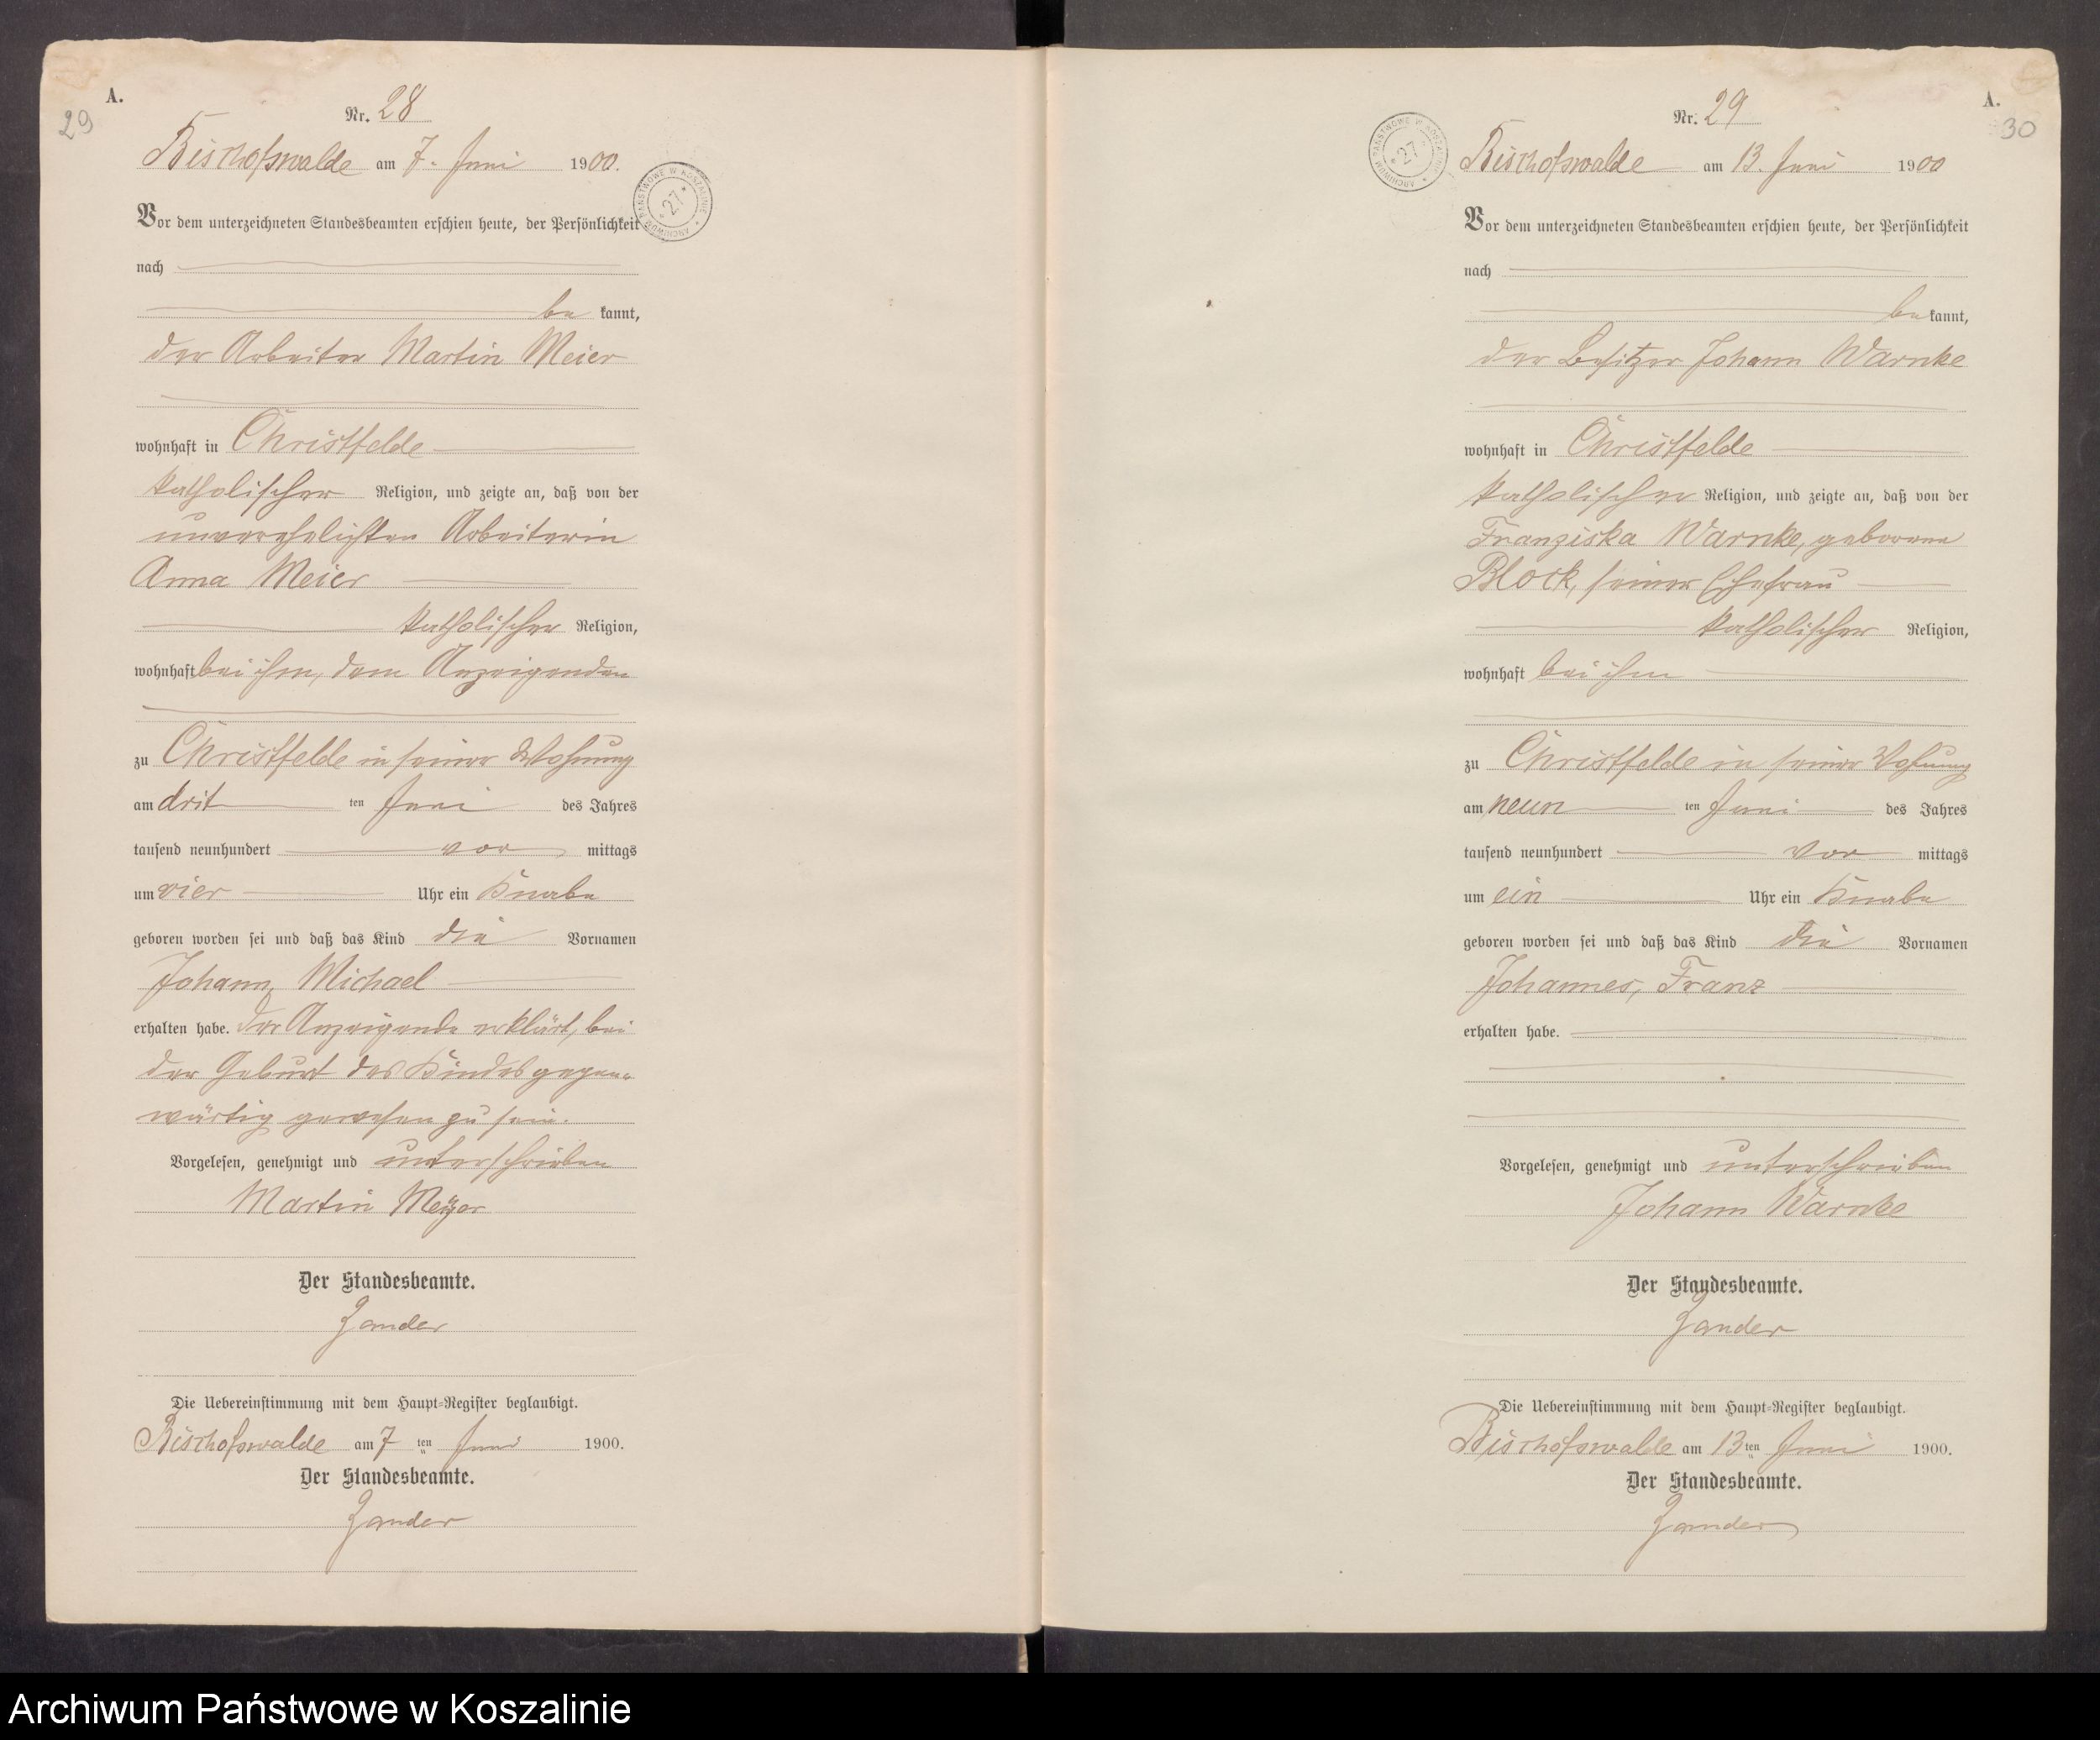 A.
29
Nr. 28
Bischofswalde am 7. Juni 1900.
ARCHIWUM PAŃSTWOWE W KOSZALINIE * 27 *
Vor dem unterzeichneten Standesbeamten erschien heute, der Persönlichkeit
nach
be kannt,
der Arbeiter Martin Meier
wohnhaft in Christfelde
katholischer Religion, und zeigte an, daß von der
unverehelichten Arbeiterin
Anna Meier
katholischer Religion,
wohnhaft bei ihm, dem Anzeigenden
zu Christfelde in seiner Wohnung
am drit ten Juni des Jahres
tausend neunhundert vor mittags
um vier Uhr ein Knabe
geboren worden sei und daß das Kind die Vornamen
Johann, Michael
erhalten habe. Der Anzeigende erklärt, bei
der Geburt des Kindes gegen-
wärtig gewesen zu sein.
Vorgelesen, genehmigt und unterschrieben
Martin Meyer
Der Standesbeamte.
Zander
Die Uebereinstimmung mit dem Haupt-Register beglaubigt.
Bischofswalde am 7 ten Juni 1900.
Der Standesbeamte.
Zander
A.
30
Nr. 29
ARCHIWUM PAŃSTWOWE W KOSZALINIE * 27 *
Bischofswalde am 13. Juni 1900
Vor dem unterzeichneten Standesbeamten erschien heute, der Persönlichkeit
nach
be kannt,
der Besitzer Johann Warnke
wohnhaft in Christfelde
katholischer Religion, und zeigte an, daß von der
Franziska Warnke, geborene
Block, seiner Ehefrau
katholischer Religion,
wohnhaft bei ihm
zu Christfelde in seiner Wohnung
am neun ten Juni des Jahres
tausend neunhundert Vor mittags
um ein Uhr ein Knabe
geboren worden sei und daß das Kind die Vornamen
Johannes, Franz
erhalten habe.
Vorgelesen, genehmigt und unterschrieben
Johann Warnke
Der Standesbeamte.
Zander
Die Uebereinstimmung mit dem Haupt-Register beglaubigt.
Bischofswalde am 13 ten Juni 1900.
Der Standesbeamte.
Zander
Archiwum Państwowe w Koszalinie